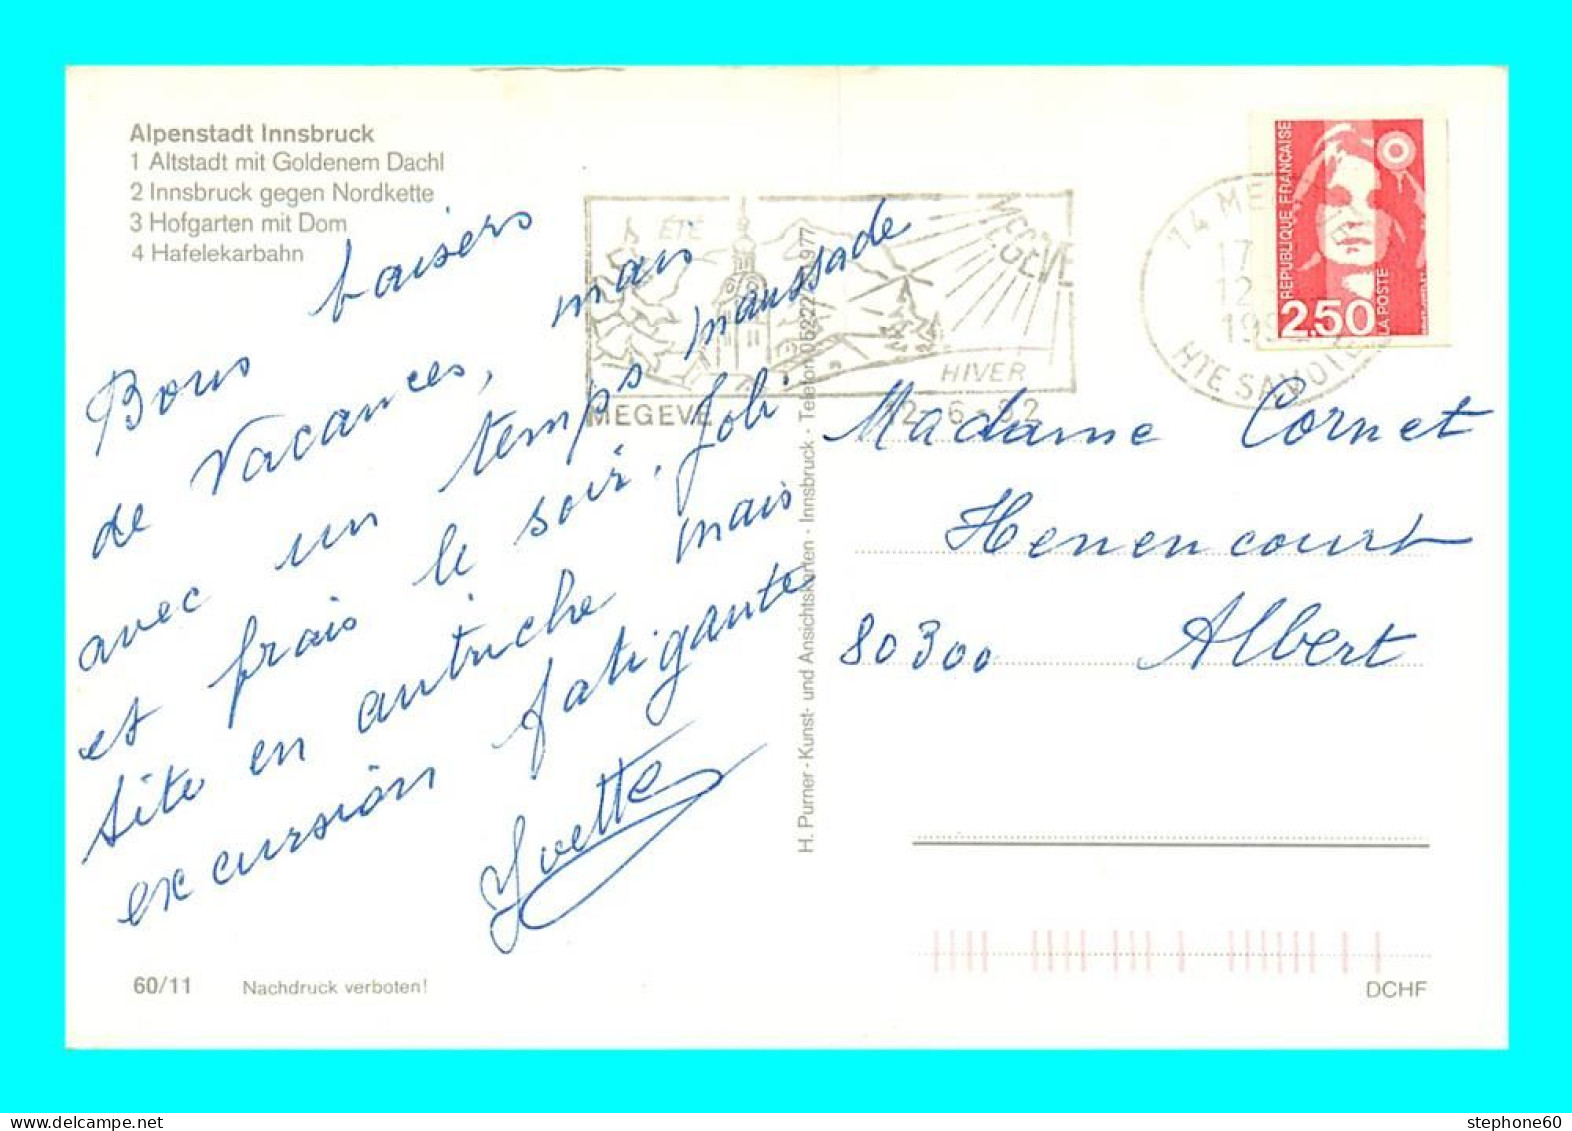 Alpenstadt Innsbruck
1 Altstadt mit Goldenem Dachl
2 Innsbruck gegen Nordkette
3 Hofgarten mit Dom
4 Hafelekarbahn
Bons baisers
de Vacances, mais
avec un temps maussade
et frais le soir, Joli
site en autriche mais
excursion fatigante
Yvette
60/11
Nachdruck verboten!
H. Purner - Kunst- und Ansichtskarten - Innsbruck - Telefon 05222
977
ÉTÉ
MEGÈVE
HIVER
MEGEVE
74 ME
17
12
199
HTE SAVOIE
REPUBLIQUE FRANÇAISE
2,50
LA POSTE
Madame Cornet
Henencourt
80300 Albert
DCHF
stephone60